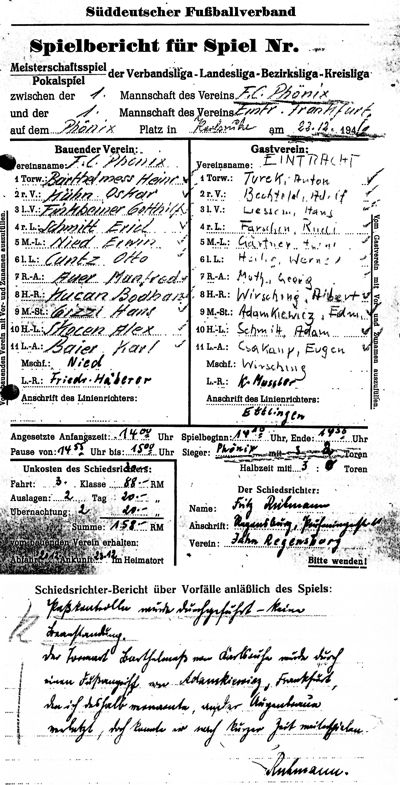 Süddeutscher Fußballverband
Spielbericht für Spiel Nr.
Meisterschaftsspiel
Pokalspiel
der Verbandsliga - Landesliga - Bezirksliga - Kreisliga
zwischen der 1. Mannschaft des Vereins F.C. Phönix
und der 1. Mannschaft des Vereins Eintr. Frankfurt,
auf dem Phönix Platz in Karlsruhe am 23.12. 194
Bauender Verein:
Vereinsname: F.C. Phönix
1 Torw.: Barthelmess Heinr
2 r. V.: Hühn Oskar
3 l. V.: Finkbeiner Gotthilf
4 r. L.: Schmitt Erich
5 M.-L.: Nied Erwin
6 l. L.: Cuntz Otto
7 R.-A.: Auer Manfred
8 H.-R.: Hucan Bodhan
9 M.-St.: Gizzi Hans
10 H.-L.: Skocen Alex
11 L.-A.: Baier Karl
Mschf.: Nied
L.-R.: Friedr. Häberer
Anschrift des Linienrichters:
Vom bauenden Verein mit Vor- und Zunamen auszufüllen.
Gastverein:
Vereinsname: EINTRACHT
1 Torw.: Turek, Anton
2 r. V.: Bechtold, Adolf
3 l. V.: Hans
4 r. L.: Rudi
5 M.-L.: Gärtner
6 l. L.: Heilig, Werner
7 R.-A.: Moth, Georg
8 H.-R.: Wirsching, Albert
9 M.-St.: Adamkiewicz, Edm
10 H.-L.: Schmitt, Adam
11 L.-A.: Csakany, Eugen
Mschf.: Wirsching
L.-R.: K.
Anschrift des Linienrichters:
Ettlingen
Vom Gastverein mit Vor- und Zunamen auszufüllen.
Angesetzte Anfangszeit: 14 00 Uhr Spielbeginn: 14 10 Uhr, Ende: Uhr
Pause von 14 55 Uhr bis 15 00 Uhr Sieger: Phönix mit 3 2 Toren
Halbzeit mit: 3 : 0 Toren
Unkosten des Schiedsrichters:
Fahrt: 3. Klasse 88.- RM
Auslagen: 2 Tag 20.- „
Übernachtung: 2 20.- „
Summe: 158.- RM
vom bauenden Verein erhalten:
Abfahrt Ankunft im Heimatort
Der Schiedsrichter:
Name: Fritz Reihmann
Anschrift: Regensburg,
Verein: Jahn Regensburg
Bitte wenden!
Schiedsrichter-Bericht über Vorfälle anläßlich des Spiels:
Paßkontrolle wurde durchgeführt – keine
Beanstandung.
Der Torwart Barthelmeß von Karlsruhe wurde durch
einen Fußangriff von Adamkiewicz, Frankfurt,
den ich deshalb verwarnte, an der Augenbraue
verletzt, doch konnte er nach kurzer Zeit weiterspielen.